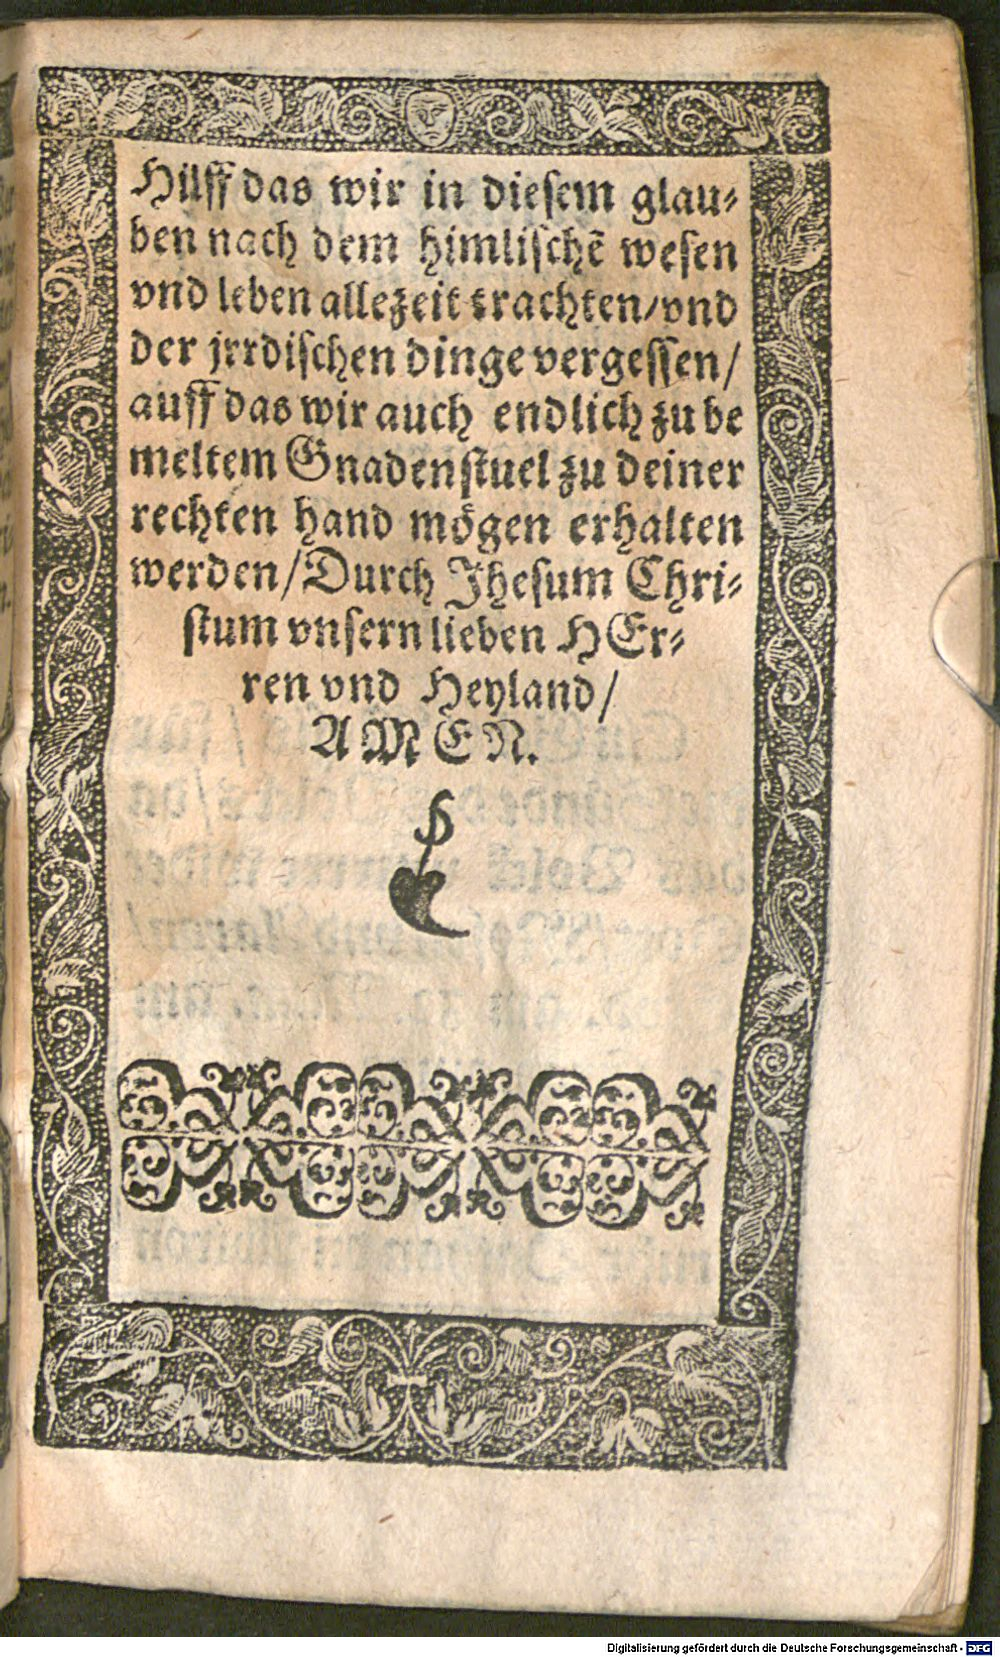 Hilff das wir in diesem glau⸗
ben nach dem himlischẽ wesen
vnd leben allezeit trachten/vnd
der jrrdischen dinge vergessen/
auff das wir auch endlich zu be
meltem Gnadenstuel zu deiner
rechten hand mögen erhalten
werden/Durch Jhesum Chri⸗
stum vnsern lieben HEr⸗
ren vnd Heyland/
AMEN.
Digitalisierung gefördert durch die Deutsche Forschungsgemeinschaft - DFG